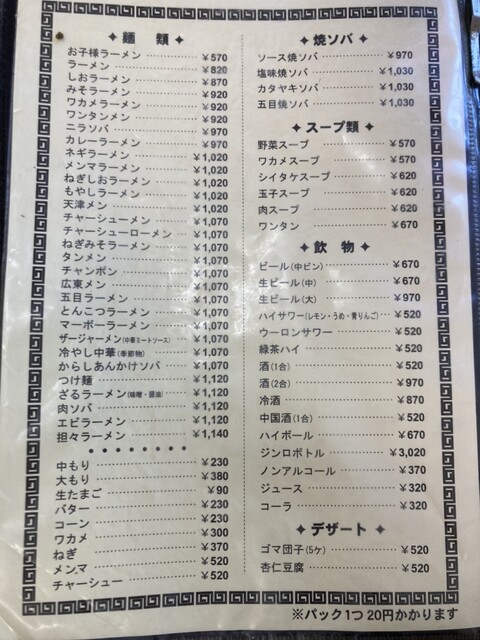 ✦ 麺 類 ✦
お子様ラーメン ¥570
ラーメン ¥820
しおラーメン ¥870
みそラーメン ¥920
ワカメラーメン ¥920
ワンタンメン ¥920
ニラソバ ¥970
カレーラーメン ¥970
ネギラーメン ¥1,020
メンマラーメン ¥1,020
ねぎしおラーメン ¥1,020
もやしラーメン ¥1,020
天津メン ¥1,020
チャーシューメン ¥1,070
チャーシューローメン ¥1,070
ねぎみそラーメン ¥1,070
タンメン ¥1,070
チャンポン ¥1,070
広東メン ¥1,070
五目ラーメン ¥1,070
とんこつラーメン ¥1,070
マーボーラーメン ¥1,070
ザージャーメン(中華ミートソース) ¥1,070
冷やし中華(季節物) ¥1,070
からしあんかけソバ ¥1,070
つけ麺 ¥1,120
ざるラーメン(味噌・醤油) ¥1,120
肉ソバ ¥1,120
エビラーメン ¥1,120
担々ラーメン ¥1,140
中もり ¥230
大もり ¥380
生たまご ¥90
バター ¥230
コーン ¥230
ワカメ ¥300
ねぎ ¥370
メンマ ¥520
チャーシュー ¥520
✦ 焼ソバ ✦
ソース焼ソバ ¥970
塩味焼ソバ ¥1,030
カタヤキソバ ¥1,030
五目焼ソバ ¥1,030
✦ スープ類 ✦
野菜スープ ¥570
ワカメスープ ¥570
シイタケスープ ¥620
玉子スープ ¥620
肉スープ ¥620
ワンタン ¥670
✦ 飲 物 ✦
ビール(中ビン) ¥670
生ビール(中) ¥670
生ビール(大) ¥970
ハイサワー(レモン・うめ・青りんご) ¥520
ウーロンサワー ¥520
緑茶ハイ ¥520
酒(1合) ¥520
酒(2合) ¥970
冷酒 ¥870
中国酒(1合) ¥520
ハイボール ¥670
ジンロボトル ¥3,020
ノンアルコール ¥370
ジュース ¥320
コーラ ¥320
✦ デザート ✦
ゴマ団子(5ケ) ¥520
杏仁豆腐 ¥520
※パック1つ20円かかります